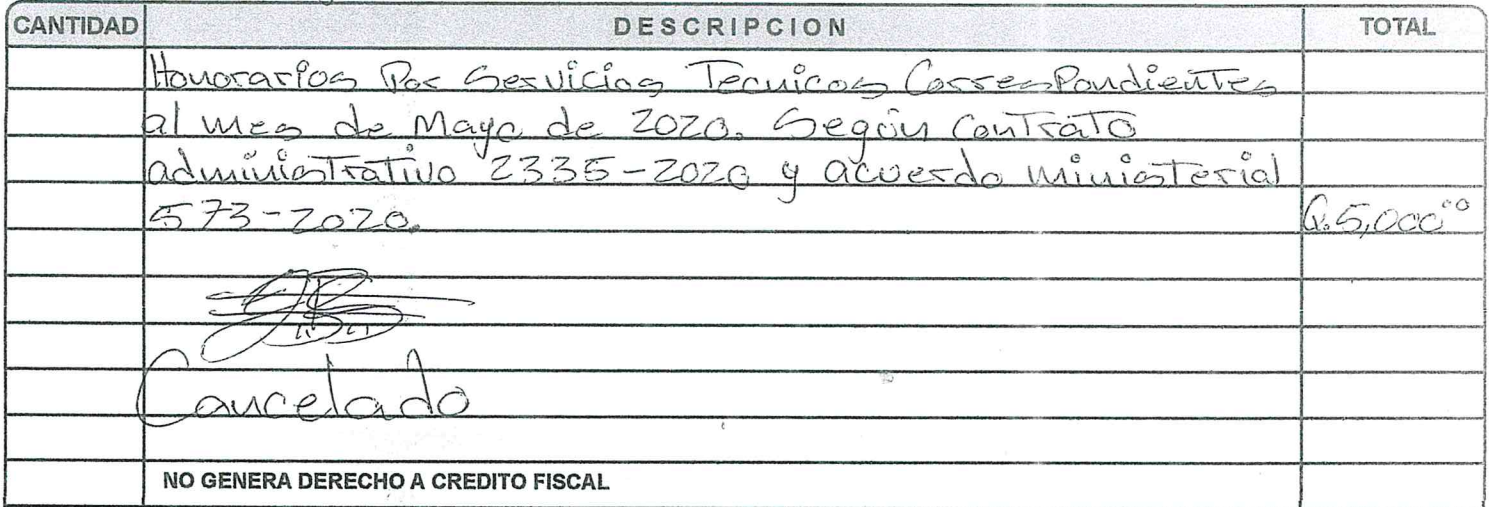 CANTIDAD DESCRIPCION TOTAL
Honorarios Por Servicios Tecnicos Correspondientes
al mes de Mayo de 2020. Según Contrato
administrativo 2335-2020 y acuerdo ministerial
573-2020. Q.5,000.00
Cancelado
NO GENERA DERECHO A CREDITO FISCAL